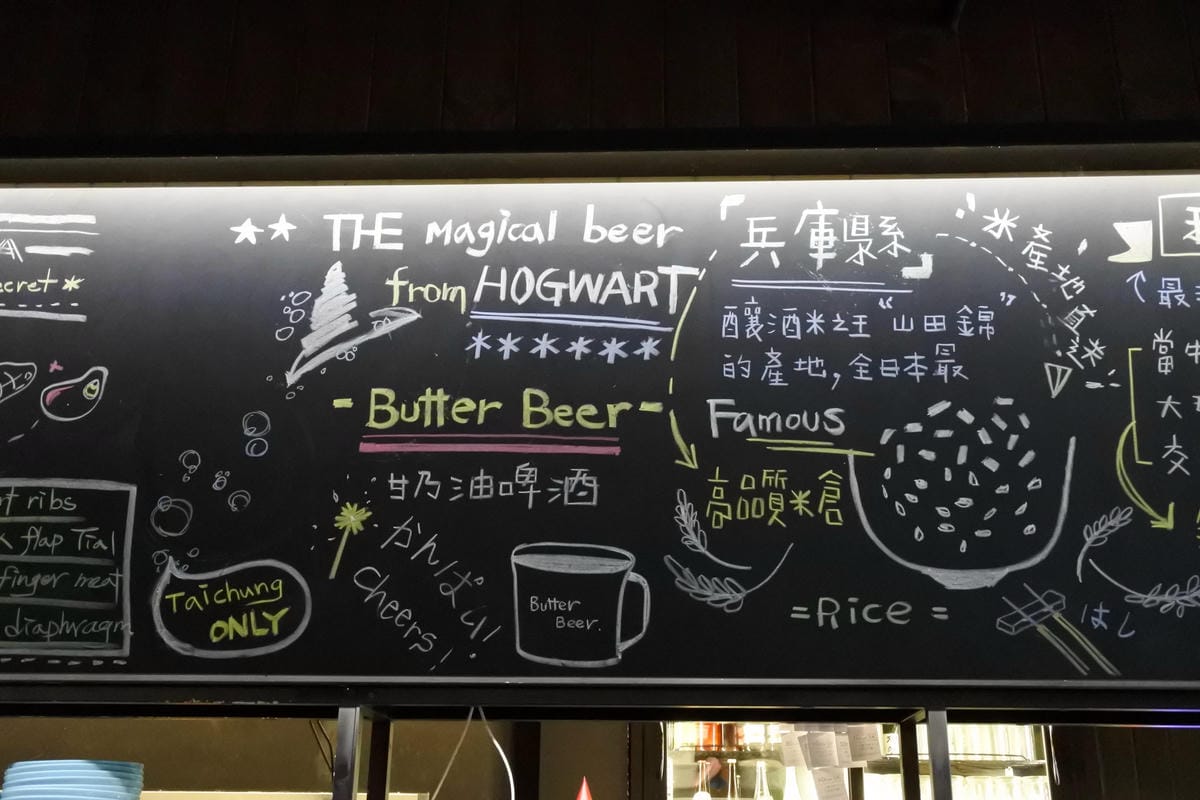 ecret *
ribs
flap Tial
finger meat
diaphragm
Taichung
ONLY
THE Magical beer
from HOGWART
******
- Butter Beer -
奶油啤酒
かんぱい!
Cheers!
Butter
Beer.
「兵庫県」
釀酒米之王“山田錦”
的產地,全日本最
Famous
高品質米倉
=Rice=
*產地直送*
はし
最
當
大
交